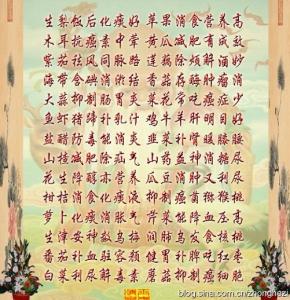 生梨饭后化痰好 苹果消食营养高
木耳抗癌素中荤 黄瓜减肥有成效
紫茄祛风同脉络 莲藕除烦解酒妙
海带含碘消淤结 香菇存酶肿瘤消
大蒜抑制肠胃炎 菜花常吃癌症少
鱼虾猪蹄补乳汁 猪牛羊肝明目好
盐醋防毒能消炎 韭菜补肾暖膝腰
山楂减肥除疝气 山药益神消糖尿
花生降醇亦营养 瓜豆消肿又利尿
柑桔消食化痰液 抑制癌菌猕猴桃
萝卜化痰消胀气 芹菜能降血压高
生津安神数乌梅 润肺乌发食核桃
番茄补血驻容颜 健胃补脾吃红枣
白菜利尿解毒素 蘑菇抑制癌细胞
blog.sina.com.cn/zhonghezi